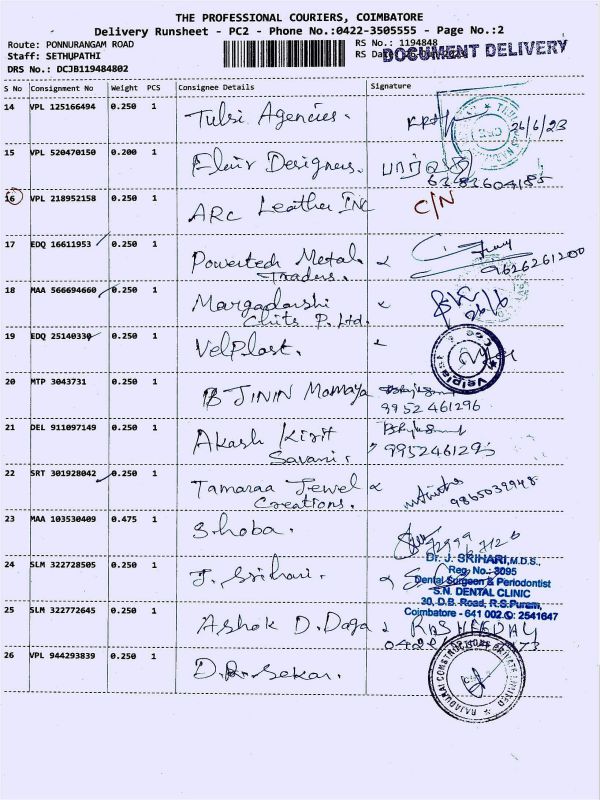 THE PROFESSIONAL COURIERS, COIMBATORE
Delivery Runsheet - PC2 - Phone No.:0422-3505555 - Page No.:2
Route: PONNURANGAM ROAD
RS No.: 1194848
DOCUMENT DELIVERY
Staff: SETHUPATHI
RS Da
DRS No.: DCJB119484802
S No Consignment No Weight PCS Consignee Details Signature
14 VPL 125166494 0.250 1 Tulsi Agencies. 24/6/23
15 VPL 520470150 0.200 1 Flair Designers.
16 VPL 218952158 0.250 1 ARC Leather INC C/N
17 EDQ 16611953 0.250 1 Powertech Metal
Traders. 9626261200
18 MAA 566694660 0.250 1 Margadarshi
Chits P. Ltd.
19 EDQ 25140330 0.250 1 VelPlast.
Velplast
20 MTP 3043731 0.250 1 B JININ Momaya
9952 461296
21 DEL 911097149 0.250 1 Akash Kirit
Savani.
22 SRT 301928042 0.250 1 Tamaraa Jewel
Creations. 9865039948
23 MAA 103530409 0.475 1 Shoba.
24 SLM 322728505 0.250 1 J. Srihari.
Dr. J. SRIHARI, M.D.S.,
Reg. No.: 3095
Dental Surgeon & Periodontist
S.N. DENTAL CLINIC
30, D.B. Road, R.S.Puram,
Coimbatore - 641 002 ✆: 2541647
25 SLM 322772645 0.250 1 Ashok D. Daga
26 VPL 944293839 0.250 1 D.R. Sekar.